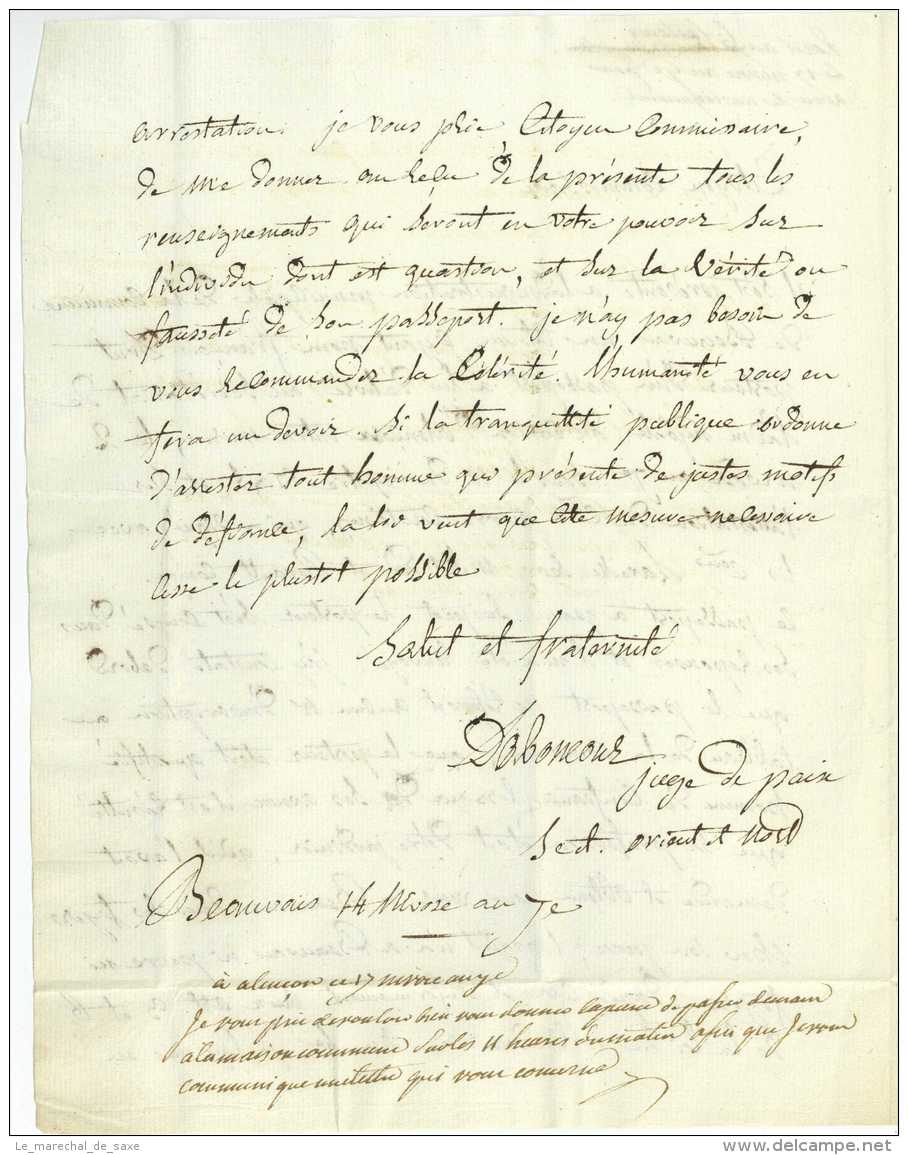 arrestation. je vous prie Citoyen Commissaire,
de me donner au recu de la présente tous les
renseignements qui seront en votre pouvoir sur
l'individu dont est quastion, et sur la Vérité ou
fausseté de son passeport. je n'ay pas besoin de
vous recommander la Célérité. l'humanité vous en
fera un devoir. Si la tranquillité publique ordonne
d'arrester tout homme qui présente de justes motifs
de défiance, la loi veut que cette mesure necessaire
cesse le plustot possible
Salut et fraternité
juge de paix
Sect. orient et Nord
Beauvais 14 Nivose an 7e
à alencon ce 17 nivose an 7e
Je vous prie de vouloir bien vous donner la peine de passer demain
a la maison commune sur les 11 heures du matin afin que Je vous
communique une lettre qui vous concerne
Le_marechal_de_saxe
www.delcampe.net